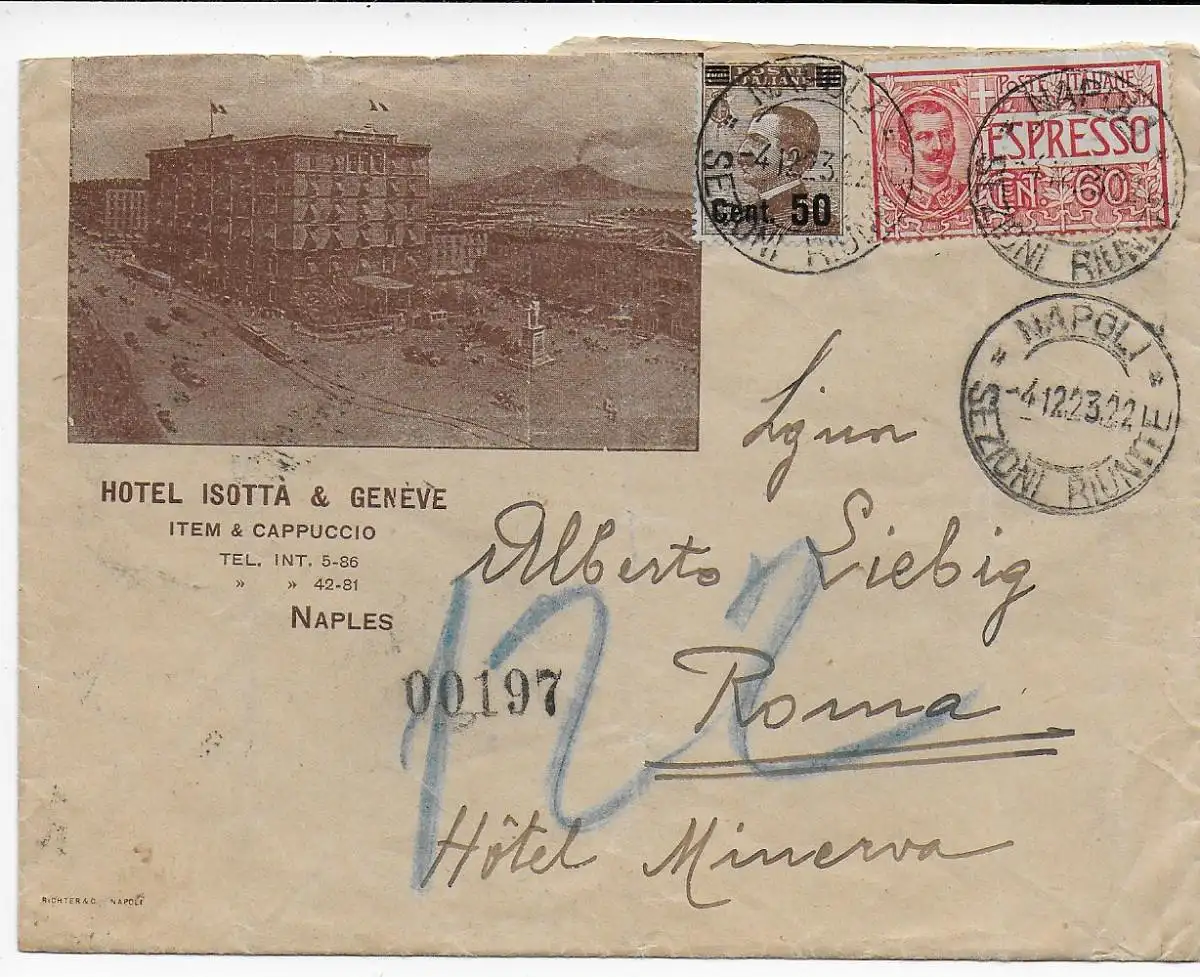 POSTE ITALIANE
Cent. 50
POSTE ITALIANE
ESPRESSO
CEN. 60
NAPOLI
-4.12.23.22
SEZIONI RIUNITE
NAPOLI
SEZIONI RIUNITE
NAPOLI
-4.12.23.22
SEZIONI RIUNITE
HOTEL ISOTTÀ & GENÈVE
ITEM & CAPPUCCIO
TEL. INT. 5-86
» » 42-81
NAPLES
Alberto Liebig
00197
Roma
122
Hôtel Minerva
RICHTER & C. NAPOLI